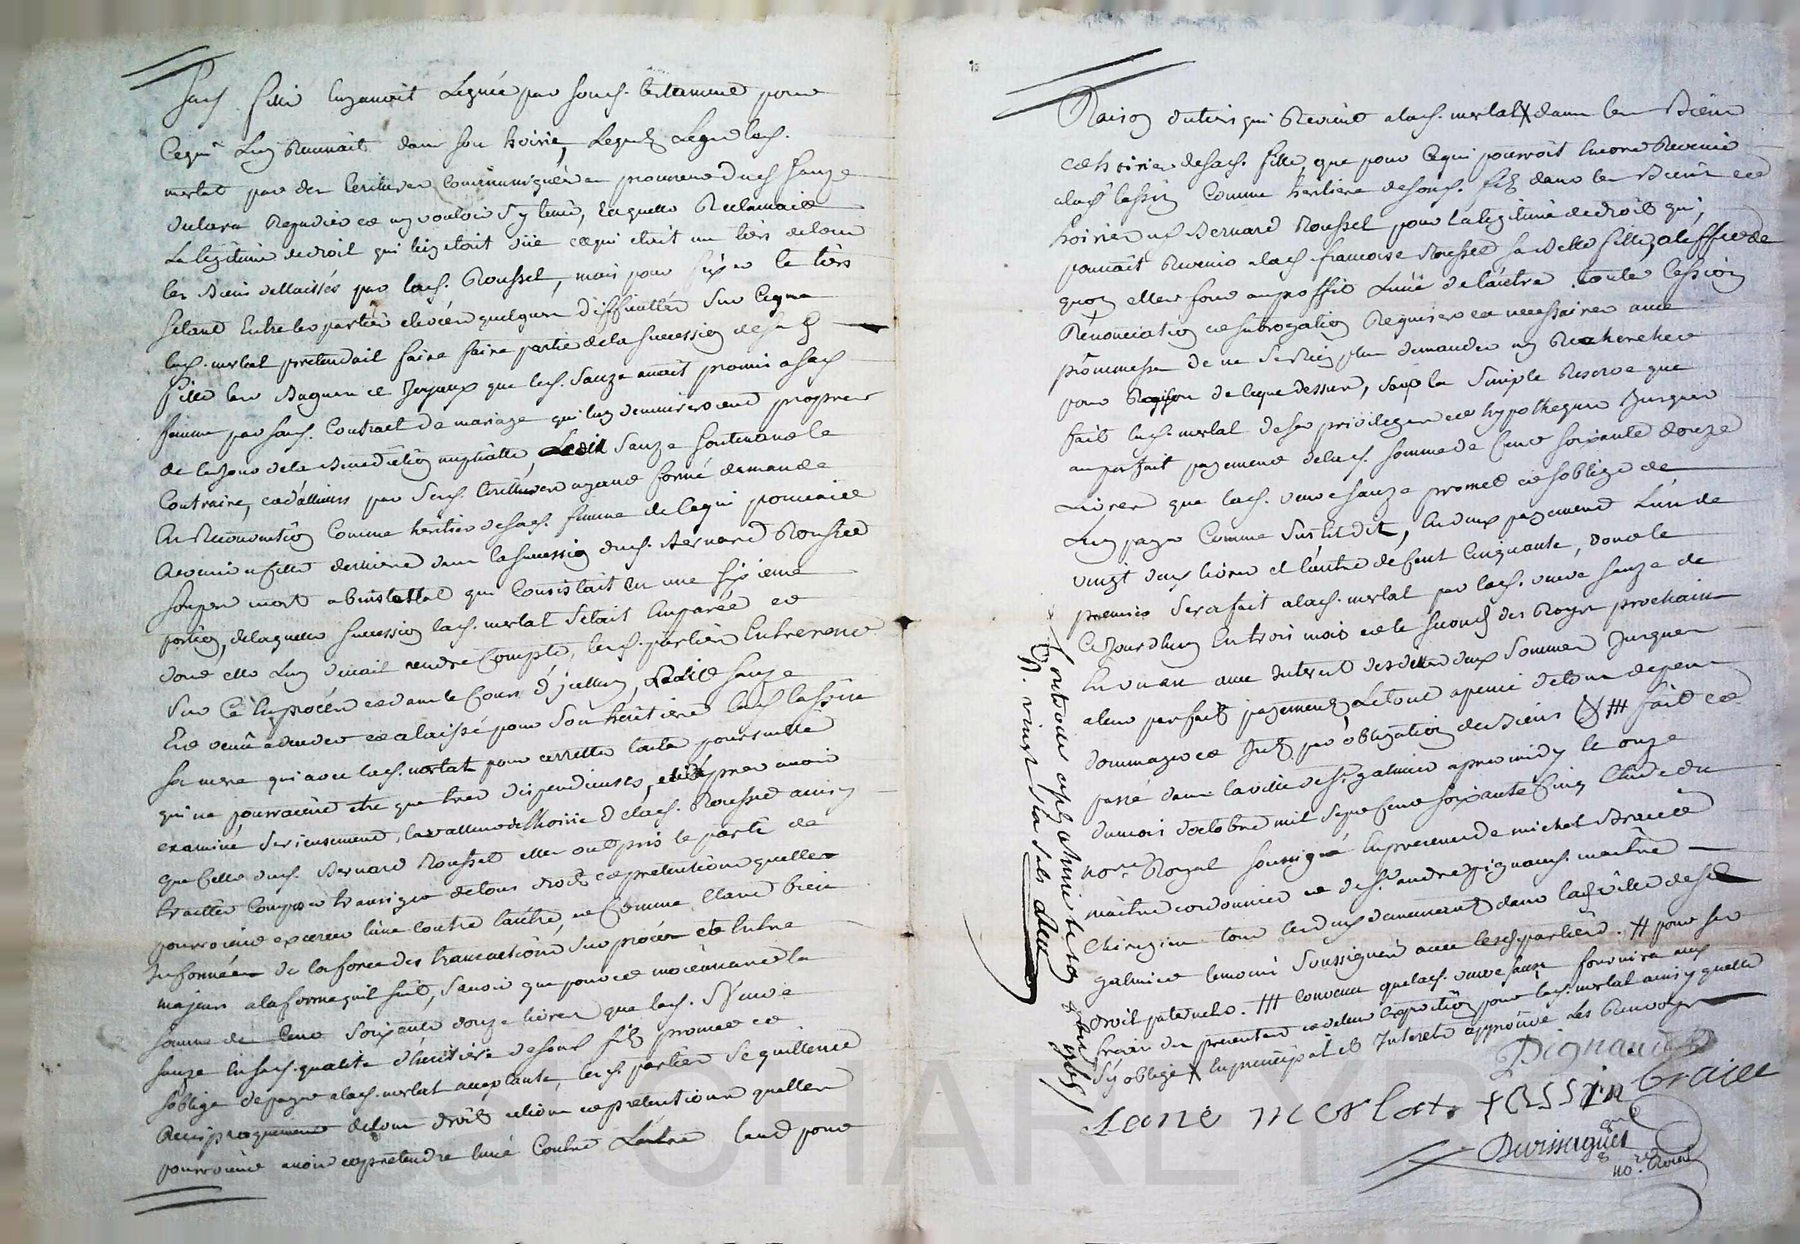 sad. fille luy auroit Légué par son d. testament pour
ce qui luy Revenoit dans son hoirie, Lequel Legue lad.
merlat par des Ecritures communiquées au procureur dud. Sauze
declara Repudier et ny vouloir s'y tenir, Laquelle Reclamait
La legitime de droit qui luy etoit düe et qui etoit un tiers de tous
les Biens dellaissés par lad. Roussel, mais pour fixer le tiers
setant Entre les parties elevées quelques difficultés sur ce que
lad. merlat pretendait faire faire partie de la succession de sad.
fille les Bagues et Joyaux que led. Sauze avoit promis a sad.
femme par sond. Contract de mariage qui luy demeureroient propres
de le jour de la Benediction nuptialle, Ledit Sauze soutenant le
Contraire, et d'ailleurs par sesd. Ecritures ayant formé demande
En Reconvention comme heritier de sad. femme de ce qui pouvoit
Revenir a cette derniere dans la succession dud. Bernard Roussel
son pere mort abintestat qui Consistait En une sixieme
portion, de laquelle succession lad. merlat s'etait Emparée et
dont elle luy devait rendre Compte, lesd. parties Entrerent
sur ce En procés et dans le Cours d'jcelluy, Ledit Sauze
Est venu a deceder et a laissé pour son heritiere lad. tassin
sa mere qui avec lad. merlat pour arretter toute poursuitte
qui ne pourroient etre que tres dispendieuses, et apres avoir
examiné serieusement, la valleur de l'hoirie de lad. Roussel ainsy
que celle dud. Bernard Roussel elles ont pris le parti de
traitter Composer transiger de tous droits et pretentions quelles
pourroient exercer l'une contre l'autre, et Comme Etant bien
Informées de la force des transactions sur procés et Entre
majeurs a la forme qui suit, savoir que pour et moiennant la
somme de Cent soixante douze livres que lad. veuve
Sauze En sad. qualité d'heritiere de sond. fils promet et
soblige de payer a lad. merlat acceptante, lesd. parties se quittent
Reciproquement de tous droits actions et pretentions quelles
pourroient avoir et pretendre l'une Contre L'autre tant pour
Raison du tiers qui Revient a lad. merlat dans les Biens
et hoirie de sad. fille, que pour ce qui pourroit Encore Revenir
a lad. tassin Comme heritiere de sond. fils dans les Biens et
hoirie dud. Bernard Roussel pour la legitime de droit qui
pouvait Revenir a lad. francoise Roussel sa Belle fille, a leffet de
quoy elles font au proffit L'une de l'autre toute Cession
Renonciation et subrogation Requises et necessaires avec
prommesse de ne se Rien plus demander ny Rechercher
pour Raison de ce que dessus, sauf la simple Reserve que
fait lad. merlat de ses privileges et hypotheques Jusques
au parfait payement de lad. somme de Cent soixante douze
Livres que lad. veuve Sauze promet et soblige de
Luy payer Comme sus est dit, En deux payements L'un de
vingt deux livres et l'autre de Cent Cinquante, dont le
premier sera fait a lad. merlat par lad. veuve Sauze de
ce jourd'huy En trois mois et le second des Roys prochains
En un an avec Interet desdittes deux sommes Jusques
a leur parfait payement Letout a peine de tous depens
dommages et Int. par obligation de Biens # fait et
passé dans la ville de St galmier apres midy le onze
du mois d'octobre mil sept Cent soixante Cinq Chez du
not.re Royal soussigné En presence de michel Braict
maitre cordonnier et de s.r andré pignaud maitre
chirugien tous deux demeurant dans lad. ville de St
galmier temoins soussignés avec lesd. parties. # pour ses
droit paternels. ### convenu que lad. veuve Sauze fournira aux
fraix des presentes et de leur Expedition pour lad. merlat ainsy quelle
s'y oblige X En principal et Interets approuvé Les Renvoys
Contrôlé et expl. a St galmier le 19 8bre 1765
R. vingt six sols
Pignaud
Leone merlat tassin braict
Durisaiguet
no.re Royal
Jean CHARLEYRON